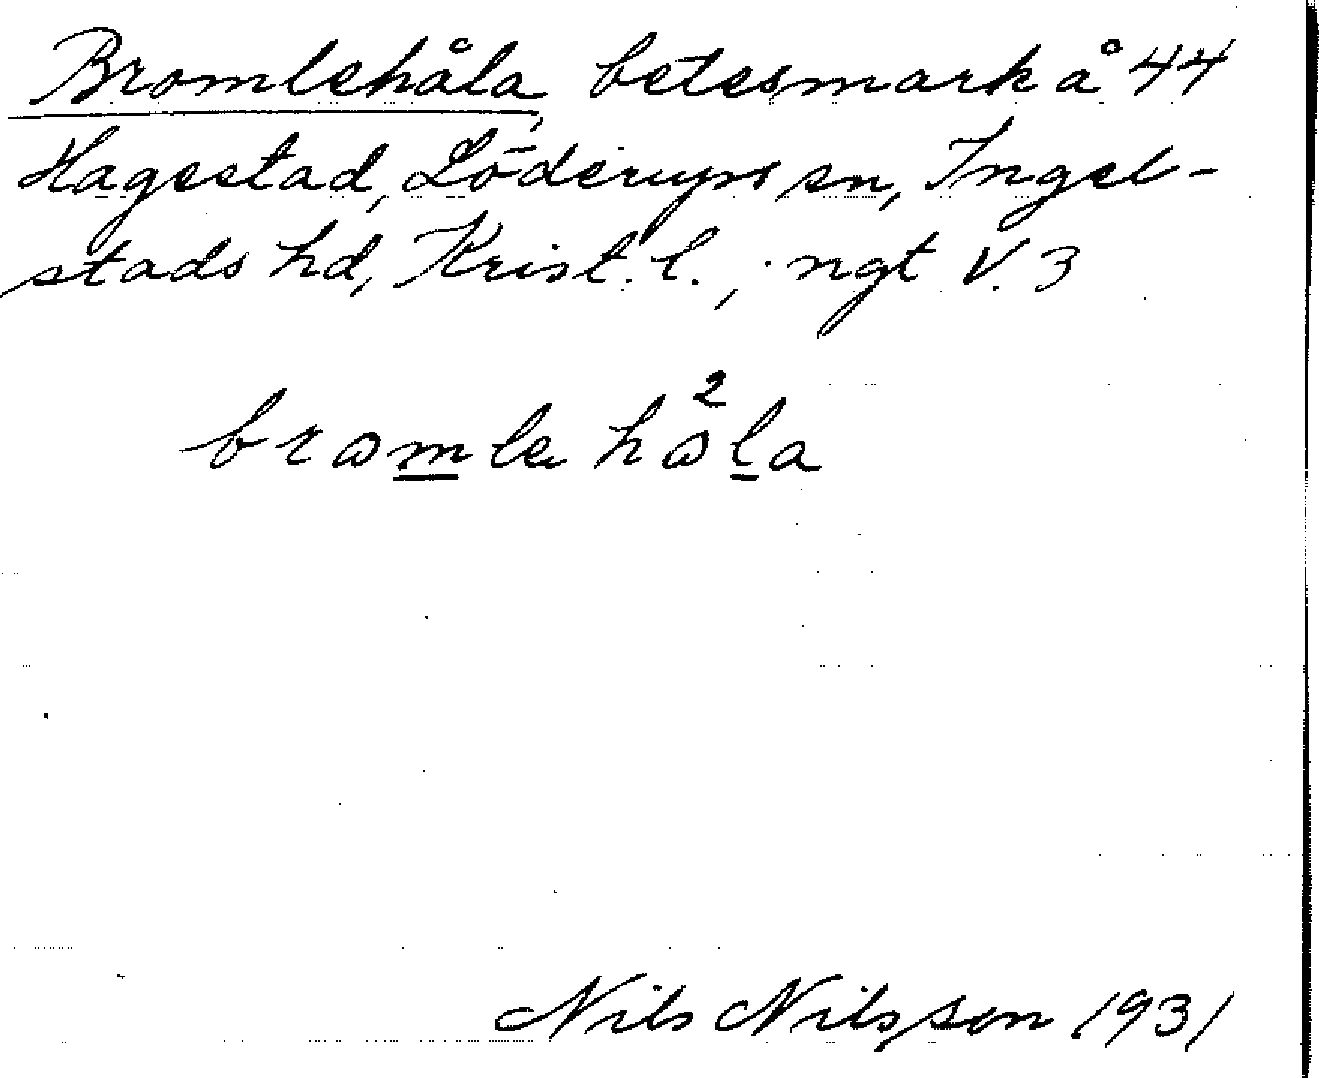 Bromlehåla, betesmark å 44
Hagestad, Löderups sn, Ingel-
stads hd, Krist. l., ngt V. 3
bromle hå²la
Nils Nilsson 1931